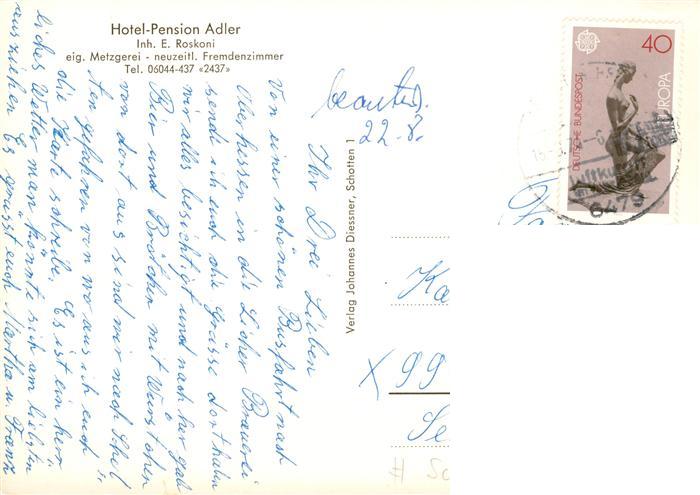 Hotel-Pension Adler
Inh. E. Roskoni
eig. Metzgerei - neuzeitl. Fremdenzimmer
Tel. 06044-437 «2437»
22.8.
Ihr Drei Lieben
Von einer schönen Busfahrt nach
Oberhessen in die Licher Brauerei
sende ich euch die Grüsse dort haben
wir alles besichtigt und nach her gab
Bier und Brötchen mit Wurst oben
von dort aus sind wir nach Schot
ten gefahren von wo aus ich euch
die Karte schreibe. Es ist ein herr
liches Wetter man könnte sich am liebsten
ausziehen Es grüsst euch Martha u. Franz
Verlag Johannes Diessner, Schotten 1
40
DEUTSCHE BUNDESPOST
EUROPA
6479
Luftkurort
Ka
X 99
Se